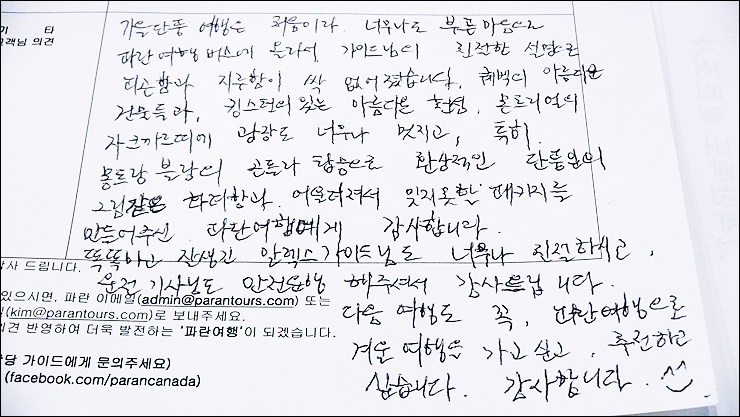 기 타
고객님 의견
가을단풍 여행은 처음이라. 너무나도 부푼 마음으로
파란여행 버스에 올라서, 가이드님의 친절한 설명으로
피곤함과 지루함이 싹 없어졌습니다. 퀘벡의 아름다운
건물들과, 킹스턴의 있는 아름다운 현경, 몬트리얼의
자크까르띠에 광장도 너무나 멋지고, 특히
몽트랑 블랑의 곤돌라 탑승으로 환상적인 단풍잎의
그림같은 화려함과 어울려져서 잊지못할 패키지를
만들어주신 파란여행에게 감사합니다.
똑똑하고 잘생긴 알렉스가이드님도 너무나 친절하시고,
운전기사님도 안전운행 해주셔서 감사드립니다.
다음 여행도 꼭, 파란여행으로
겨울 여행을 가고싶고, 추천하고
싶습니다. 감사합니다.
감사 드립니다.
있으시면, 파란 이메일(admin@parantours.com) 또는
(kim@parantours.com)로 보내주세요.
의견 반영하여 더욱 발전하는 '파란여행'이 되겠습니다.
담당 가이드에게 문의주세요)
(facebook.com/parancanada)